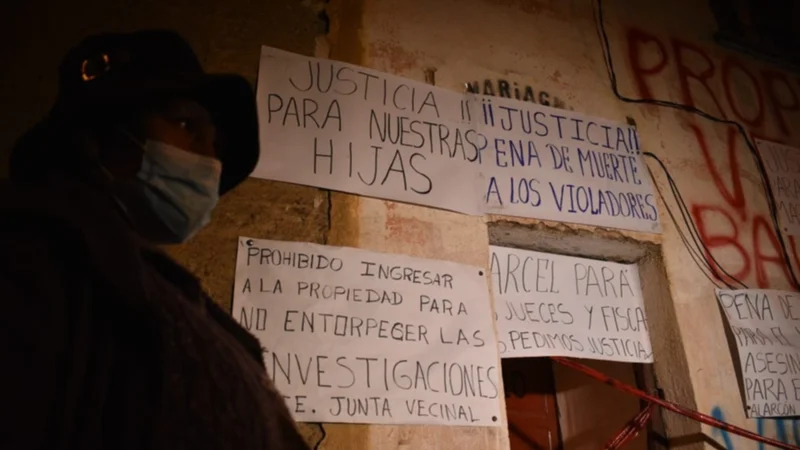 JUSTICIA !!
PARA NUESTRAS
HIJAS
¡¡JUSTICIA!!
PENA DE MUERTE
A LOS VIOLADORES
PROHIBIDO INGRESAR
A LA PROPIEDAD PARA
NO ENTORPEGER LAS
INVESTIGACIONES
TE. JUNTA VECINAL
ARCEL PARA
JUECES Y FISCA
PEDIMOS JUSTICIA
PROP
V
BA
PENA DE
PARA EL
ASESIN
PARA E
ALARCÓN